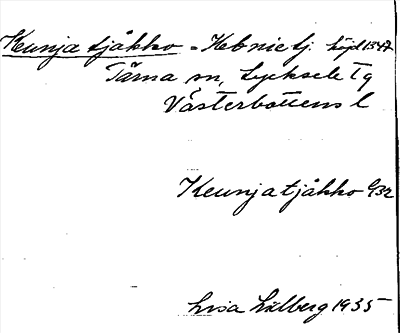 Keunja tjåkko = Kebnietj. höjd 1347
Tärna sn, Lycksele Tg
Västerbottens l
Keunjatjåkko 932
Lisa Lidberg 1935